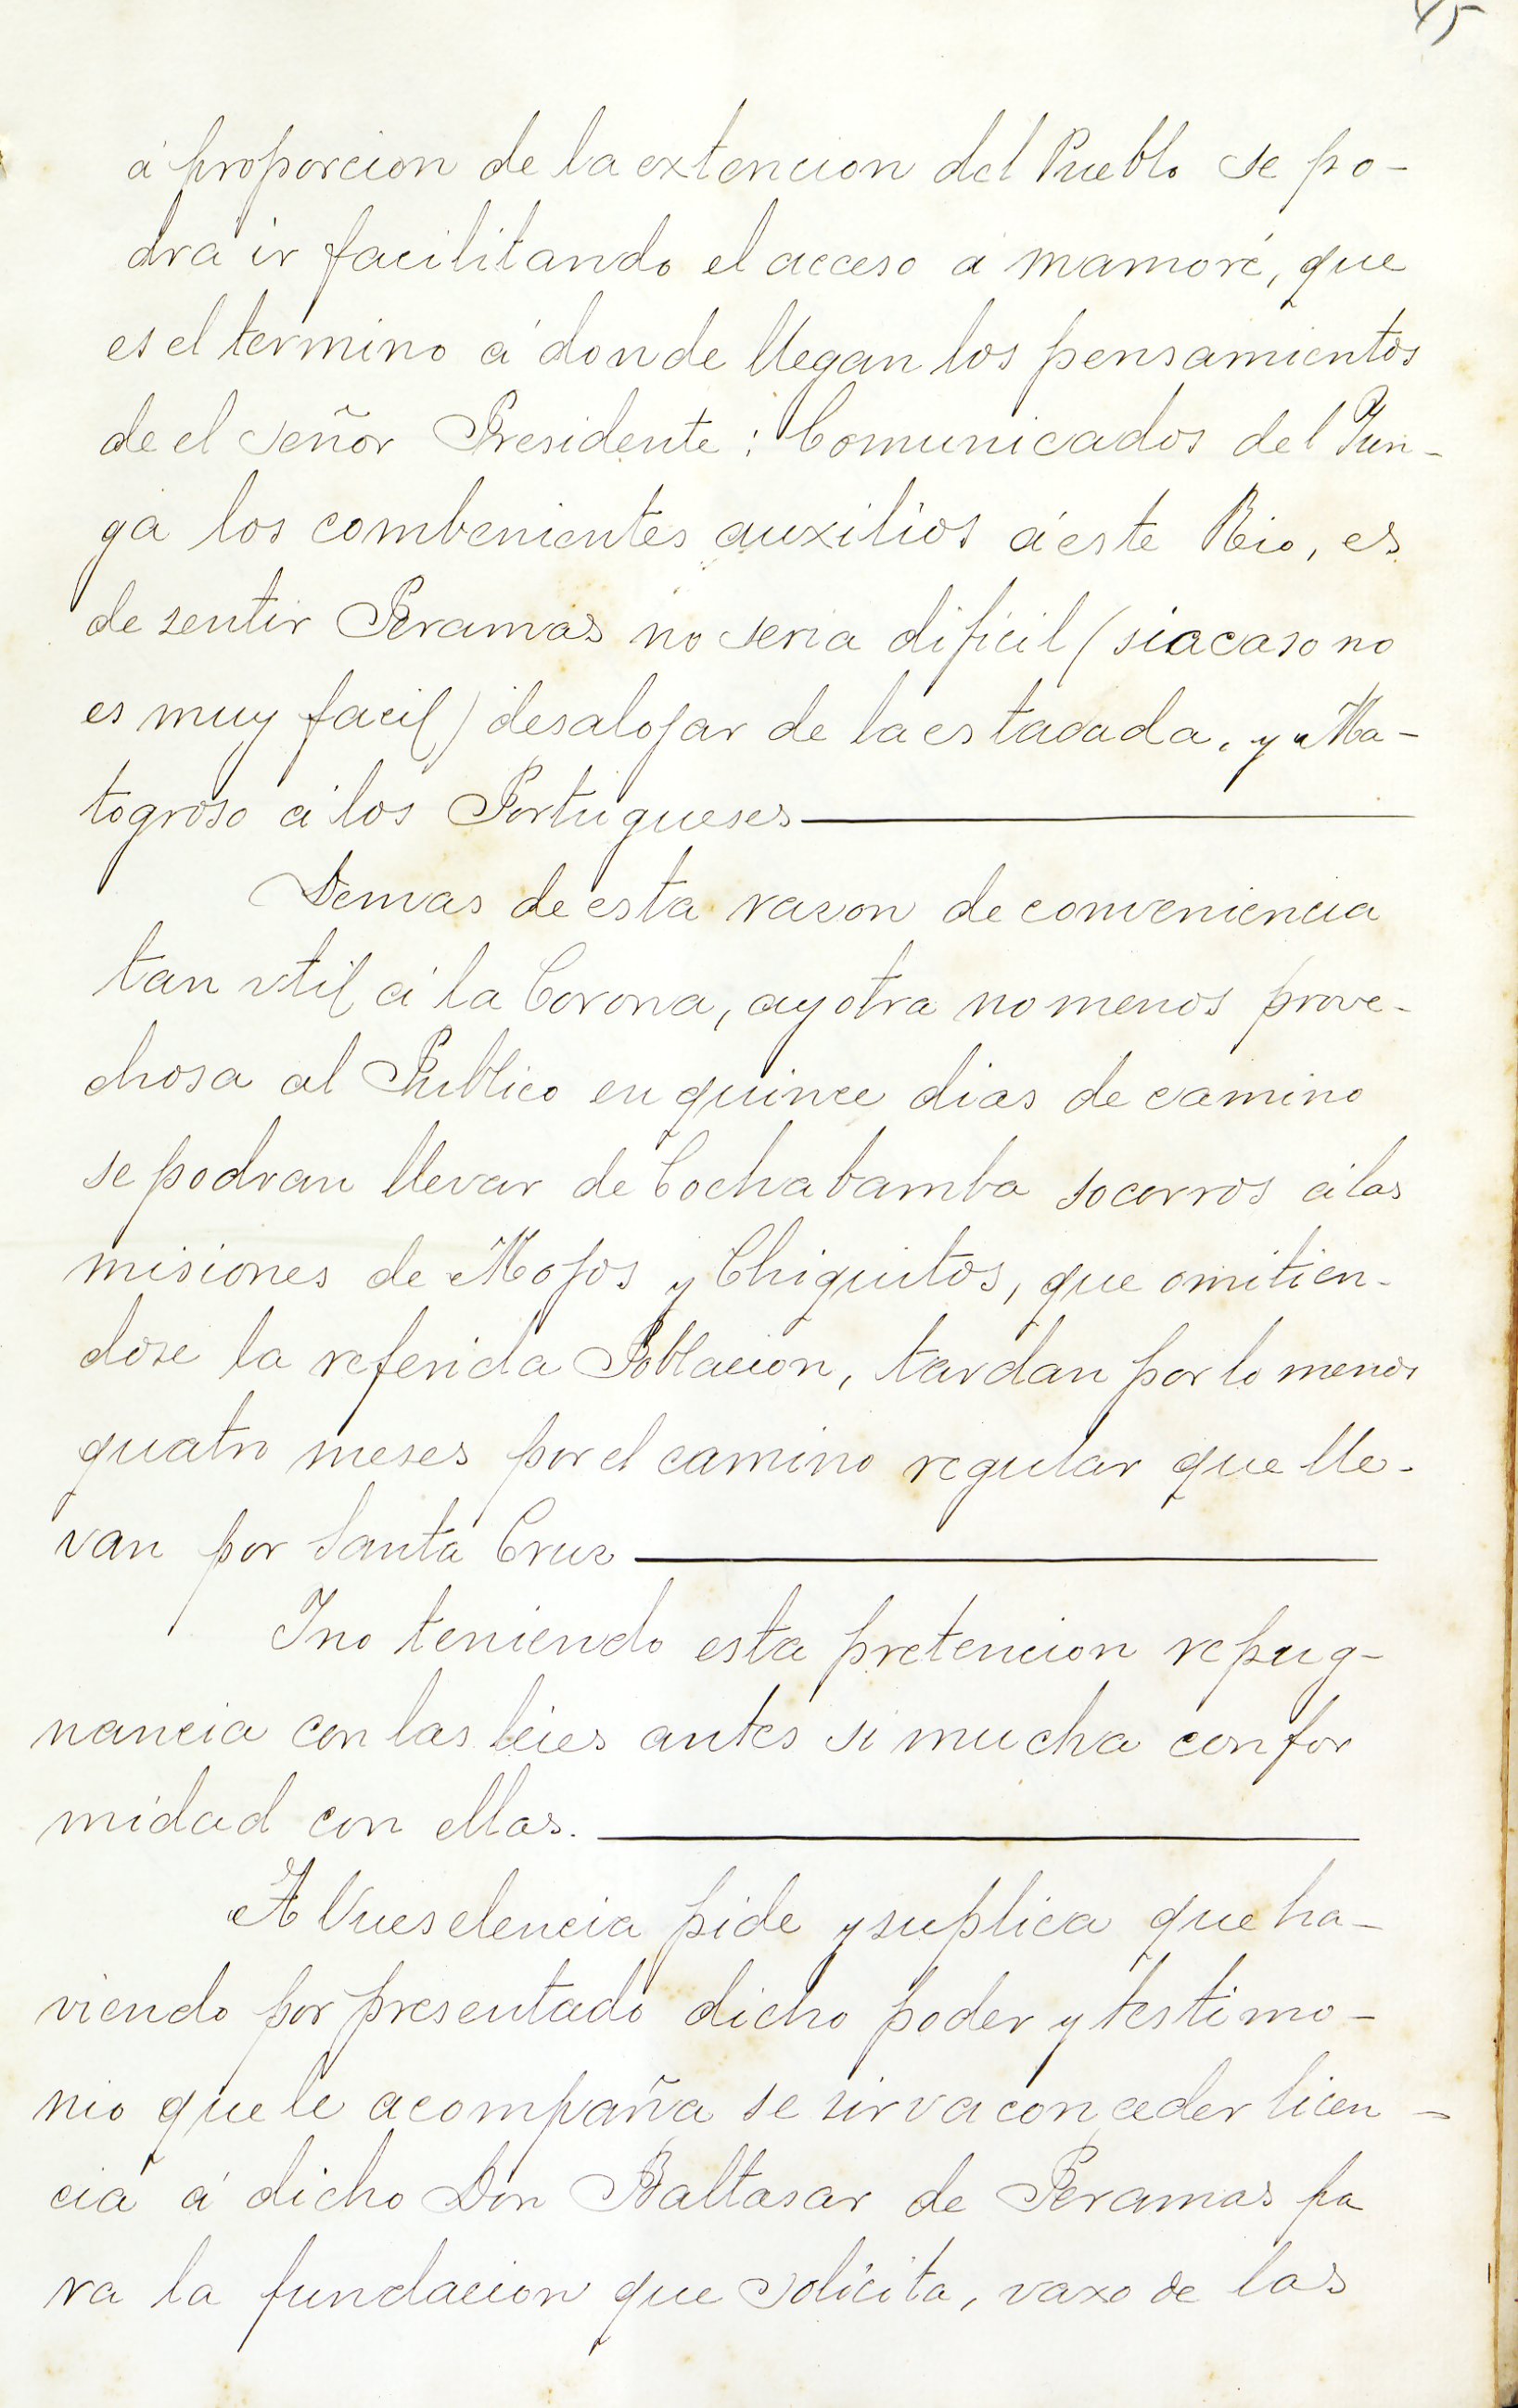 45
á proporcion de la extencion del Pueblo se po-
drá ir facilitando el acceso á mamoré, que
es el termino á donde llegan los pensamientos
de el señor Presidente: Comunicados del Yun-
ga los combenientes auxilios á este Rio, es
de sentir Peramas no seria dificil (si acaso no
es muy facil) desalojar de la estacada, y Ma-
togroso á los Portugueses
Demas de esta razon de conveniencia
tan vtil á la Corona, ay otra no menos prove-
chosa al Publico en quince dias de camino
se podran llevar de Cochabamba socorros á las
misiones de Mojos y Chiquitos, que omitien-
dose la referida Poblacion, tardan por lo menos
quatro meses por el camino regular que lle-
van por Santa Cruz
Y no teniendo esta pretencion repug-
nancia con las leies antes si mucha confor
midad con ellas.
A Vueselencia pide y suplica que ha-
viendo por presentado dicho poder y testimo-
nio que le acompaña se sirva conceder licen-
cia á dicho Don Baltasar de Peramas pa
ra la fundacion que solicita, vaxo de las